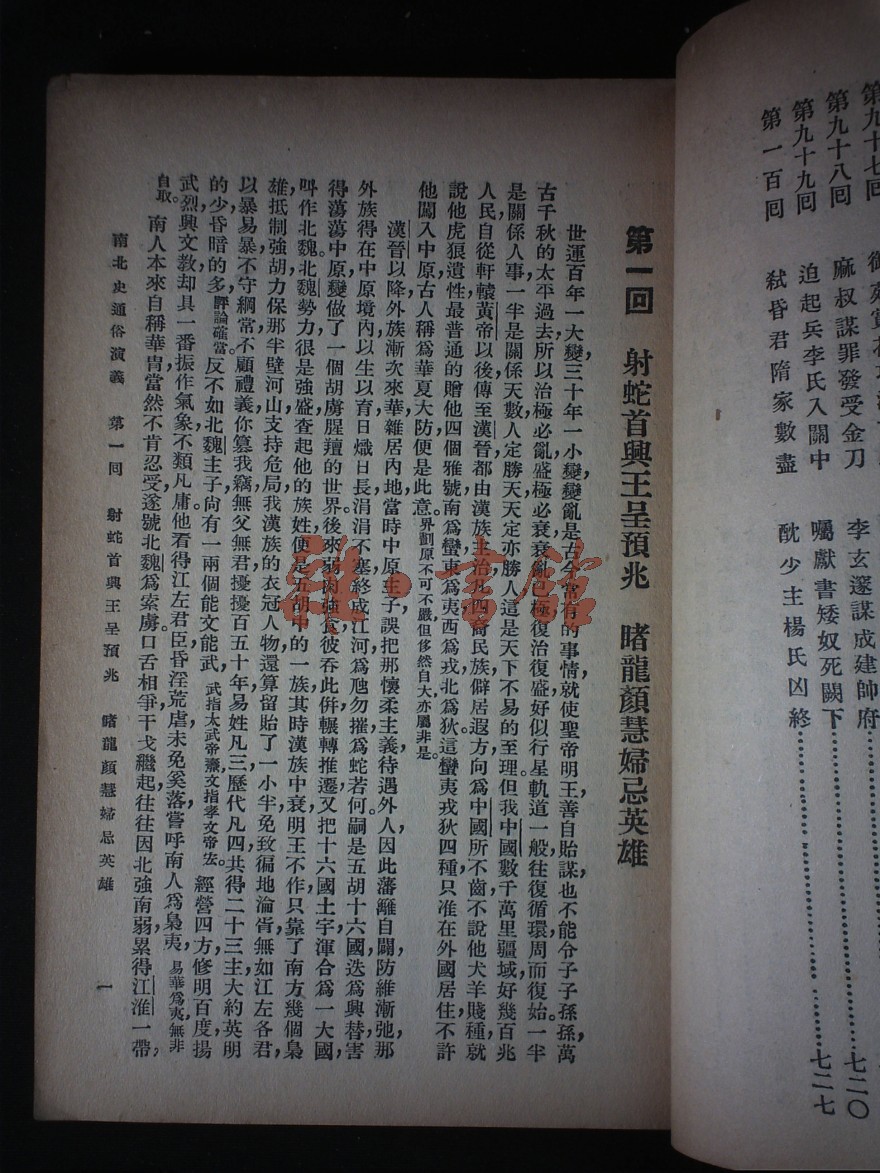 第九十七回
第九十八回　麻叔謀罪發受金刀　李玄邃謀成建帥府
第九十九回　迫起兵李氏入關中　囑獻書矮奴死闕下……七二〇
第一百回　弑昏君隋家數盡　酖少主楊氏凶終……七二七
第一回　射蛇首興王呈預兆　睹龍顏慧婦忌英雄
世運百年一大變，三十年一小變，變亂是古今常有的事情，就使聖帝明王，善自貽謀，也不能令子子孫孫，萬
古千秋的太平過去，所以治極必亂，盛極必衰，衰亂已極，復治復盛，好似行星軌道一般，往復循環，周而復始。一半
是關係人事，一半是關係天數，人定勝天，天定亦勝人，這是天下不易的至理。但我中國數千萬里疆域，好幾百兆
人民，自從軒轅黃帝以後，傳至漢晉，都由漢族主治，凡四裔民族，僻居遐方，向為中國所不齒，不說他犬羊賤種，就
說他虎狼遺性，最普通的贈他四個雅號，南為蠻，東為夷，西為戎，北為狄。這蠻夷戎狄四種，只准在外國居住，不許
他闖入中原，古人稱為華夏大防，便是此意。界劃原不可不嚴，但侈然自大，亦屬非是。
漢晉以降，外族漸次來華，雜居內地，當時中原主子，誤把那懷柔主義，待遇外人，因此藩籬自闢，防維漸弛，那
外族得在中原境內，以生以育，日熾日長，涓涓不塞，終成江河，為虺勿摧，為蛇若何。嗣是五胡十六國，迭為興替，害
得蕩蕩中原，變做了一個胡虜腥羶的世界。後來弱肉強食，彼吞此併，輾轉推遷，又把十六國土宇，渾合為一大國，
叫作北魏。北魏勢力，很是強盛，查起他的族姓，便是五胡中的一族，其時漢族中衰，明王不作，只靠了南方幾個梟
雄，抵制強胡，力保那半壁河山，支持危局，我漢族的衣冠人物，還算留貽了一小半，免致徧地淪胥，無如江左各君，
以暴易暴，不守綱常，不顧禮義，你篡我竊，無父無君，擾擾百五十年，易姓凡三，歷代凡四，共得二十三主，大約英明
的少，昏暗的多，評論確當。反不如北魏主子，尚有一兩個能文能武，武指太武帝燾，文指孝文帝宏。經營四方，修明百度，揚
武烈，興文教，却具一番振作氣象，不類凡庸。他看得江左君臣，昏淫荒虐，未免奚落，嘗呼南人為梟夷，易華為夷，無非
自取。南人本來自稱華冑，當然不肯忍受，遂號北魏為索虜。口舌相爭，干戈繼起，往往因北強南弱，累得江淮一帶，
南北史通俗演義　第一回　射蛇首興王呈預兆　睹龍顏慧婦忌英雄　一